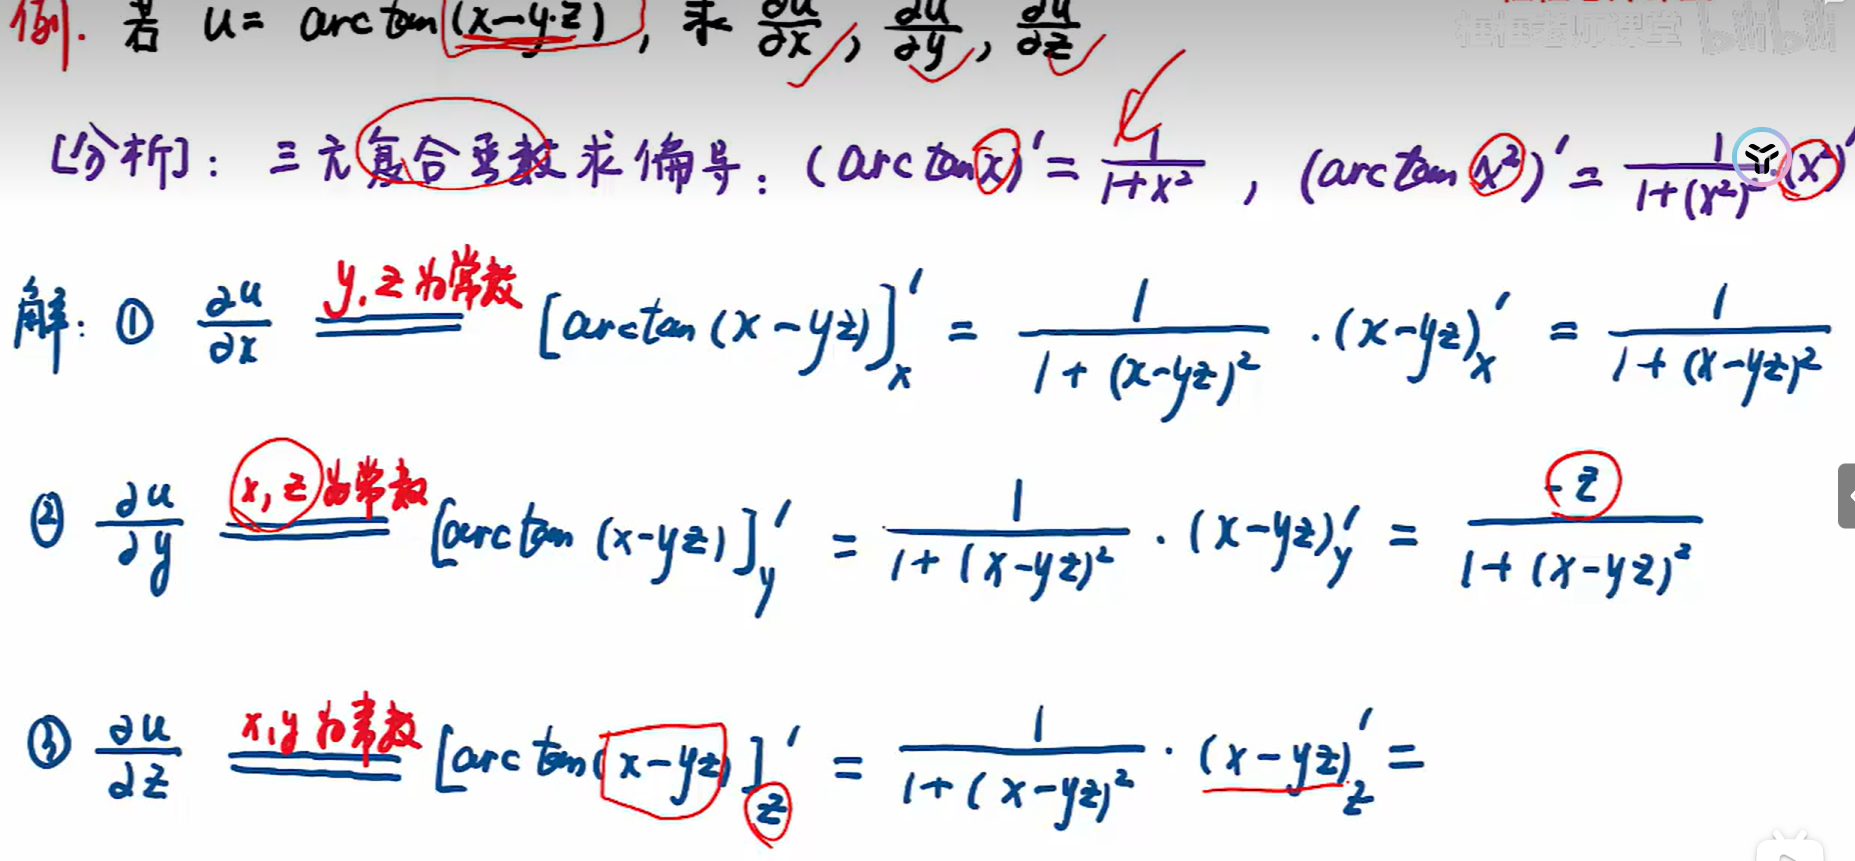 例. 若 u = arctan(x-y·z), 求 ∂u/∂x, ∂u/∂y, ∂u/∂z
框框老师课堂 bilibili
[分析]: 三元复合函数求偏导: (arctan x)' = 1/(1+x²), (arctan x²)' = 1/(1+(x²)²)·(x²)'
解: ① ∂u/∂x y,z为常数 == [arctan(x-yz)]'x = 1/(1+(x-yz)²) · (x-yz)'x = 1/(1+(x-yz)²)
② ∂u/∂y x,z为常数 == [arctan(x-yz)]'y = 1/(1+(x-yz)²) · (x-yz)'y = -z/(1+(x-yz)²)
③ ∂u/∂z x,y为常数 == [arctan(x-yz)]'z = 1/(1+(x-yz)²) · (x-yz)'z =